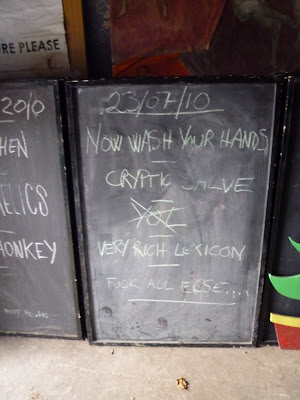 RE PLEASE
2010
HEN
ELICS
23/07/10
NOW WASH YOUR HANDS
CRYPTIC SALVE
VERY RICH LEXICON
FUCK ALL ELSE....